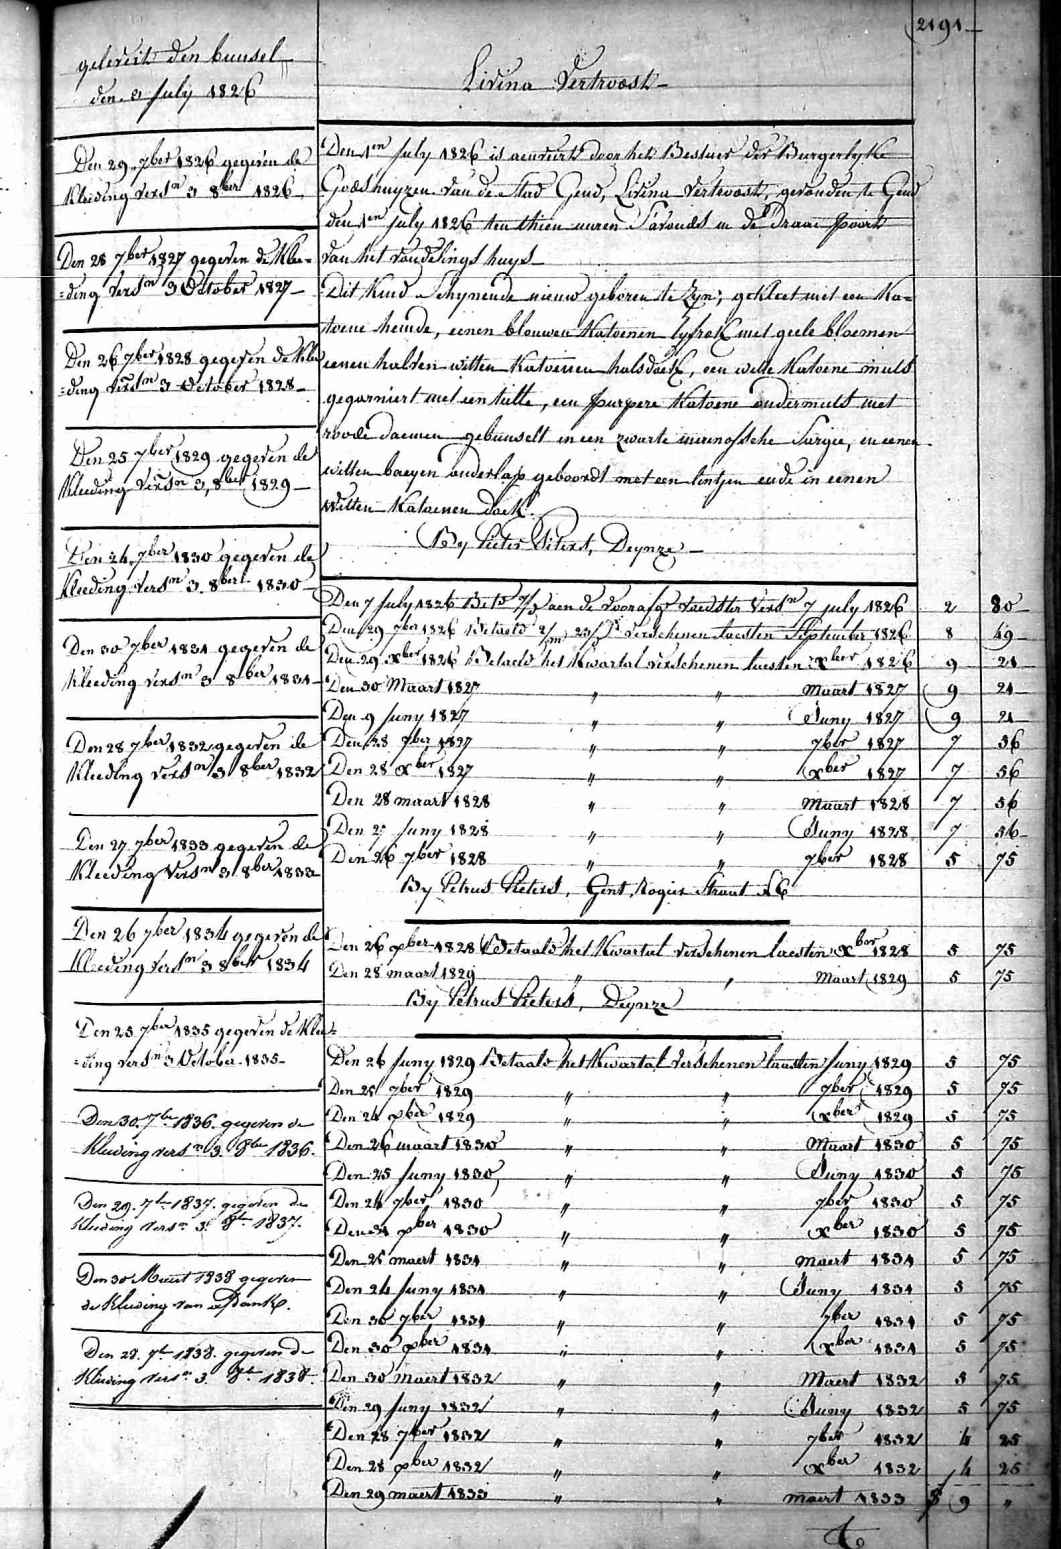 2191
gelevert den bunsel
den 3 July 1826
Den 29 7ber 1826 gegeven de
Kleeding versn 3 8ber 1826
Den 28 7ber 1827 gegeven de Klee=
=ding versn 3 October 1827
Den 26 7ber 1828 gegeven de Klee
=ding versn 3 October 1828
Den 25 7ber 1829 gegeven de
Kleeding versn 3, 8ber 1829
Den 24 7ber 1830 gegeven de
Kleeding versn 3. 8ber 1830
Den 30 7ber 1831 gegeven de
Kleeding versn 3 8ber 1831
Den 28 7ber 1832 gegeven de
Kleeding versn 3 8ber 1832
Den 27 7ber 1833 gegeven de
Kleeding versn 3 8ber 1833
Den 26 7ber 1834 gegeven de
Kleeding versn 3 8ber 1834
Den 25 7ber 1835 gegeven de Klee=
=ding versn 3 October 1835
Den 30. 7be 1836. gegeven de
Kleeding versn 3. 8be 1836.
Den 29. 7be 1837. gegeven de
Kleeding versn 3. 8be 1837.
Den 30 Meert 1838 gegeven
de Kleeding van
Den 28. 7be 1838. gegeven de
Kleeding versn 3. 8be 1838.
Livina Vertroost
Den 1en July 1826 is aenveirt door het Bestuer der Burgerlyke
Godshuyzen van de stad Gend, Livina Vertroost, gevonden te Gend
den 1en July 1826 ten thien uuren S'avonds in de Draai poort
van het vondelings huys
Dit Kind Schynende nieuw geboren te Zyn; gekleet met een Ka=
toene hemde, eenen blauwen Katoenen lyfrok met geele bloemen
eenen halven witten Katoenen halsdoek, een witte Katoene muts
gegarniert met een tulle, een purpere Katoene ondermuts met
roode gebunselt in een zwarte Sargie, en eenen
witten baeyen onderlap geboordt met een lintjen ende in eenen
Witten Katoenen doek.
By Pieter Piters, Deynze
Den 7 July 1826 aen de voedster versn 7 july 1826 2 80
Den 29 7ber 1826 Betaeld verschenen laesten September 1826 8 49
Den 29 xber 1826 Betaeld het Kwartal verschenen laesten xber 1826 9 21
Den 30 Maart 1827 " " Maart 1827 9 21
Den 9 Juny 1827 " " Juny 1827 9 21
Den 28 7ber 1827 " " 7ber 1827 7 56
Den 28 xber 1827 " " xber 1827 7 56
Den 28 maart 1828 " " Maart 1828 7 56
Den 27 Juny 1828 " " Juny 1828 7 56
Den 26 7ber 1828 " " 7ber 1828 5 75
By Petrus Pieters, Gent, Rogier Straat
Den 26 xber 1828 Betaald het Kwartal verschenen laesten xber 1828 5 75
Den 28 maart 1829 " " Maart 1829 5 75
By Petrus Pieters, Deynze
Den 26 Juny 1829 Betaald het Kwartal verschenen laesten Juny 1829 5 75
Den 25 7ber 1829 " " 7ber 1829 5 75
Den 24 xber 1829 " " xber 1829 5 75
Den 26 maart 1830 " " Maart 1830 5 75
Den 25 Juny 1830 " " Juny 1830 5 75
Den 24 7ber 1830 " " 7ber 1830 5 75
Den 31 xber 1830 " " xber 1830 5 75
Den 25 maert 1831 " " maert 1831 5 75
Den 24 Juny 1831 " " Juny 1831 5 75
Den 30 7ber 1831 " " 7ber 1831 5 75
Den 30 xber 1831 " " xber 1831 5 75
Den 30 maert 1832 " " Maert 1832 5 75
Den 29 Juny 1832 " " Juny 1832 5 75
Den 28 7ber 1832 " " 7ber 1832 4 25
Den 28 xber 1832 " " xber 1832 4 25
Den 29 maert 1833 " " maert 1833 9 "